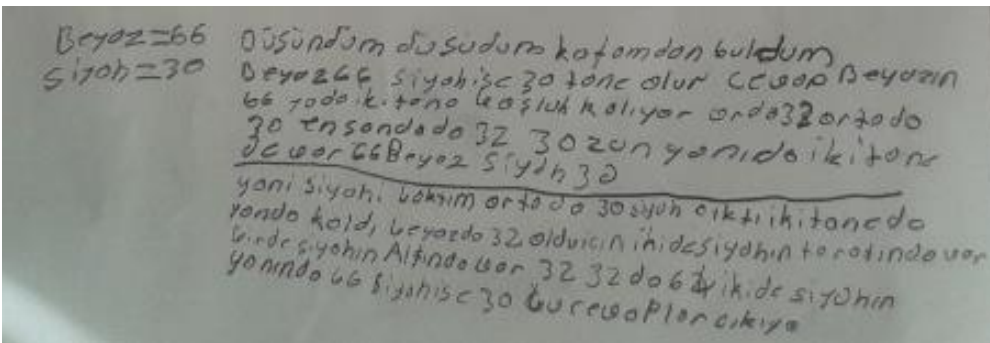 Beyaz=66 Düşündüm düşüdüm kafamdan buldum
Siyah=30 Beyaz 66 siyah ise 30 tane olur cevap Beyazın
66 yada iki tane boşluk kalıyor orda 32 ortada
30 en sondada 32 30 zun yanıda iki tane
de var 66 Beyaz Siyah 30
yani siyahi baktım ortada 30 siyah çıktı iki tanede
yanda kaldı, beyazda 32 olduiçin ikide siyahin tarafında var
birde siyahın Altında var 32 32 da 64 ikide siyahın
yanında 66 Siyah ise 30 bu cevaplar çıkıyo